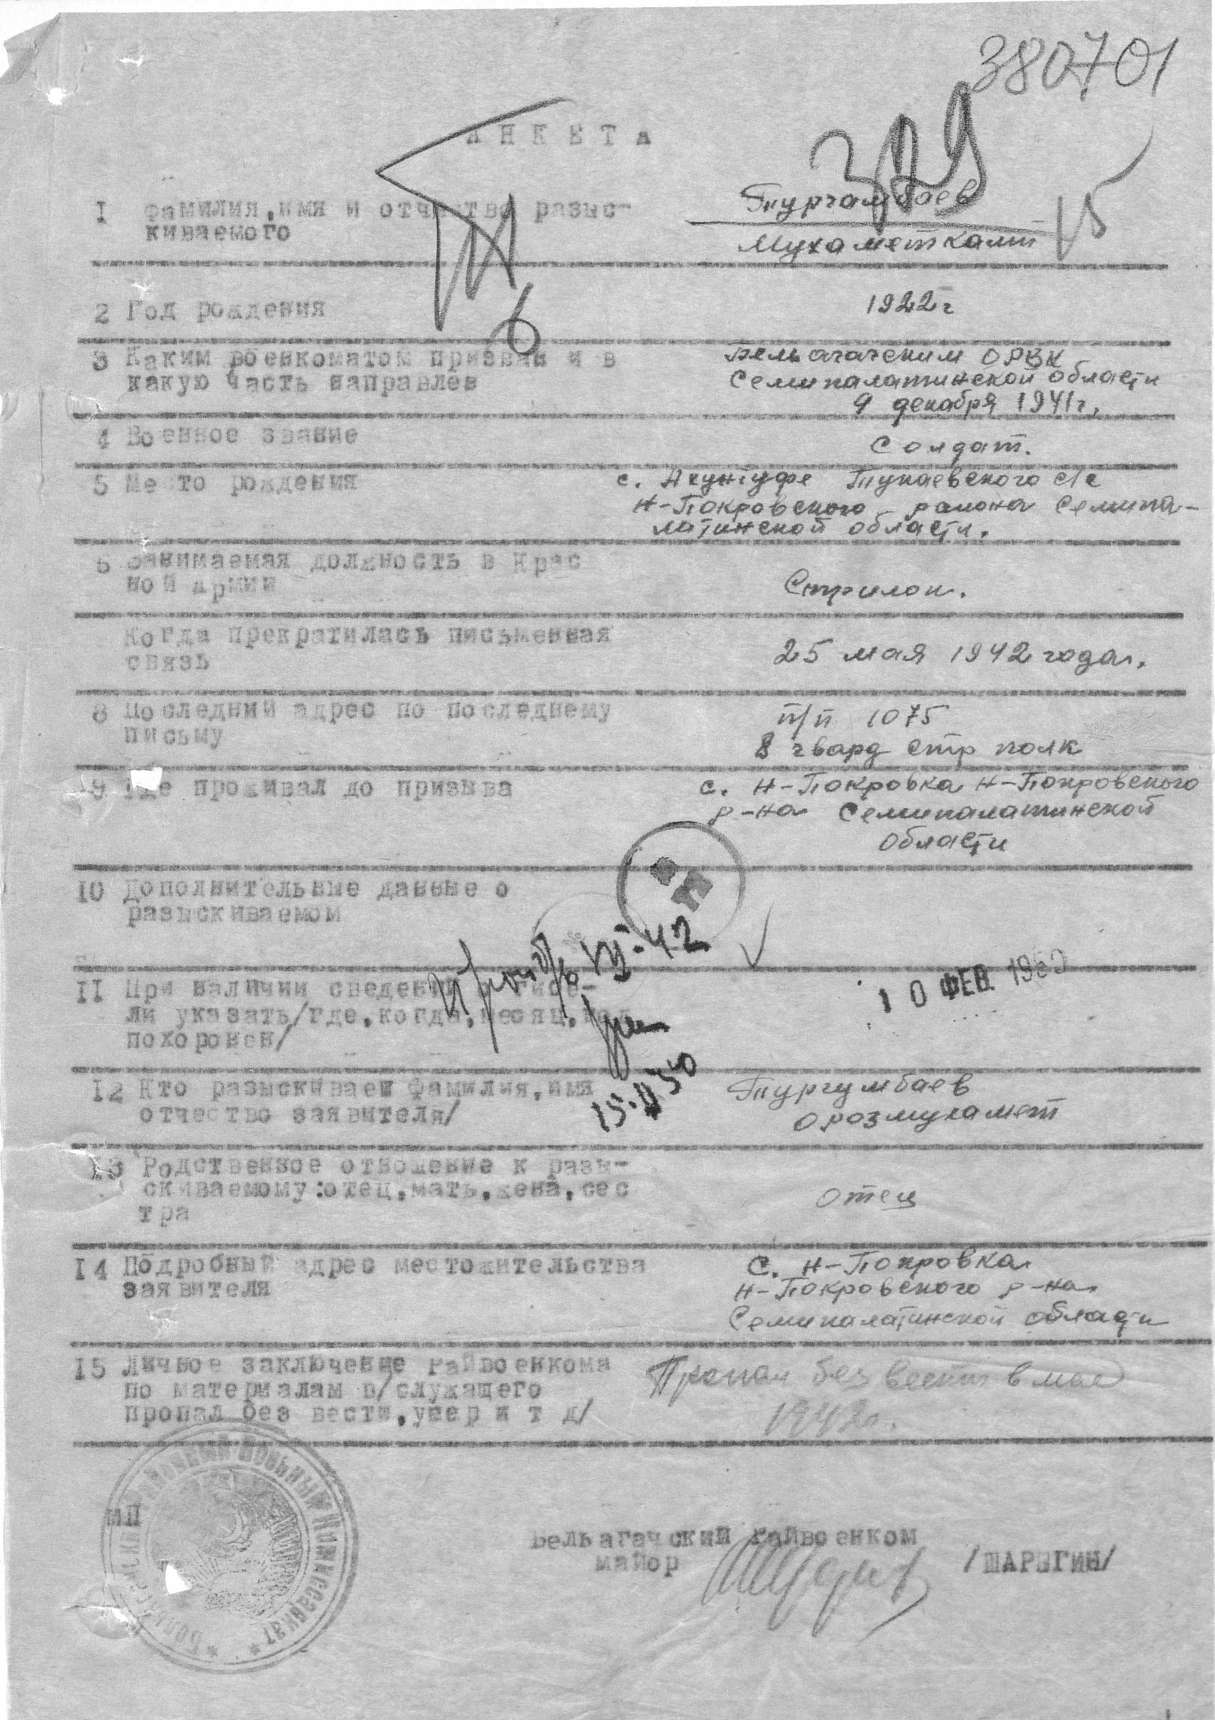 380701
АНКЕТА
329
15
6
I Фамилия, имя и отчество разыс-
киваемого
Тургамбаев
Мухаметкалит
2 Год рождения
1922 г
3 Каким военкоматом призван и в
какую часть направлев
Бельагаческим ОРВК
Семипалатинской области
9 декабря 1941 г.
4 Военное звание
Солдат.
5 Место рождения
с. Тукаевского с/с
Н-Покровского района Семипа-
латинской области.
6 Занимаемая должность в Крас
ной Армии
Стрилок.
Когда прекратилась письменная
связь
25 мая 1942 года.
8 Последний адрес по последнему
письму
п/п 1075
8 гвард стр полк
9 Где проживал до призыва
с. Н-Покровка Н-Покровского
р-на Семипалатинской
области
10 Дополнительные данные о
разыскиваемом
II При наличии сведений о гибе-
ли указать/где, когда, месяц, год
похоронен/
VII-42
15.II 50
10 ФЕВ 1950
12 Кто разыскивает Фамилия, имя
отчество заявителя/
Тургумбаев
Орозмухамет
13 Родственное отношение к разы-
скиваемому: отец, мать, жена, сес
тра
отец
14 Подробный адрес местожительства
заявителя
С. Н-Покровка
Н-Покровского р-на
Семипалатинской области
15 Личное заключение Райвоенкома
по материалам в/служащего
пропал без вести, умер и т д/
Пропал без вести в мае
1942 г.
МП
Бельагачский райвоенком
майор /ШАРЫГИН/